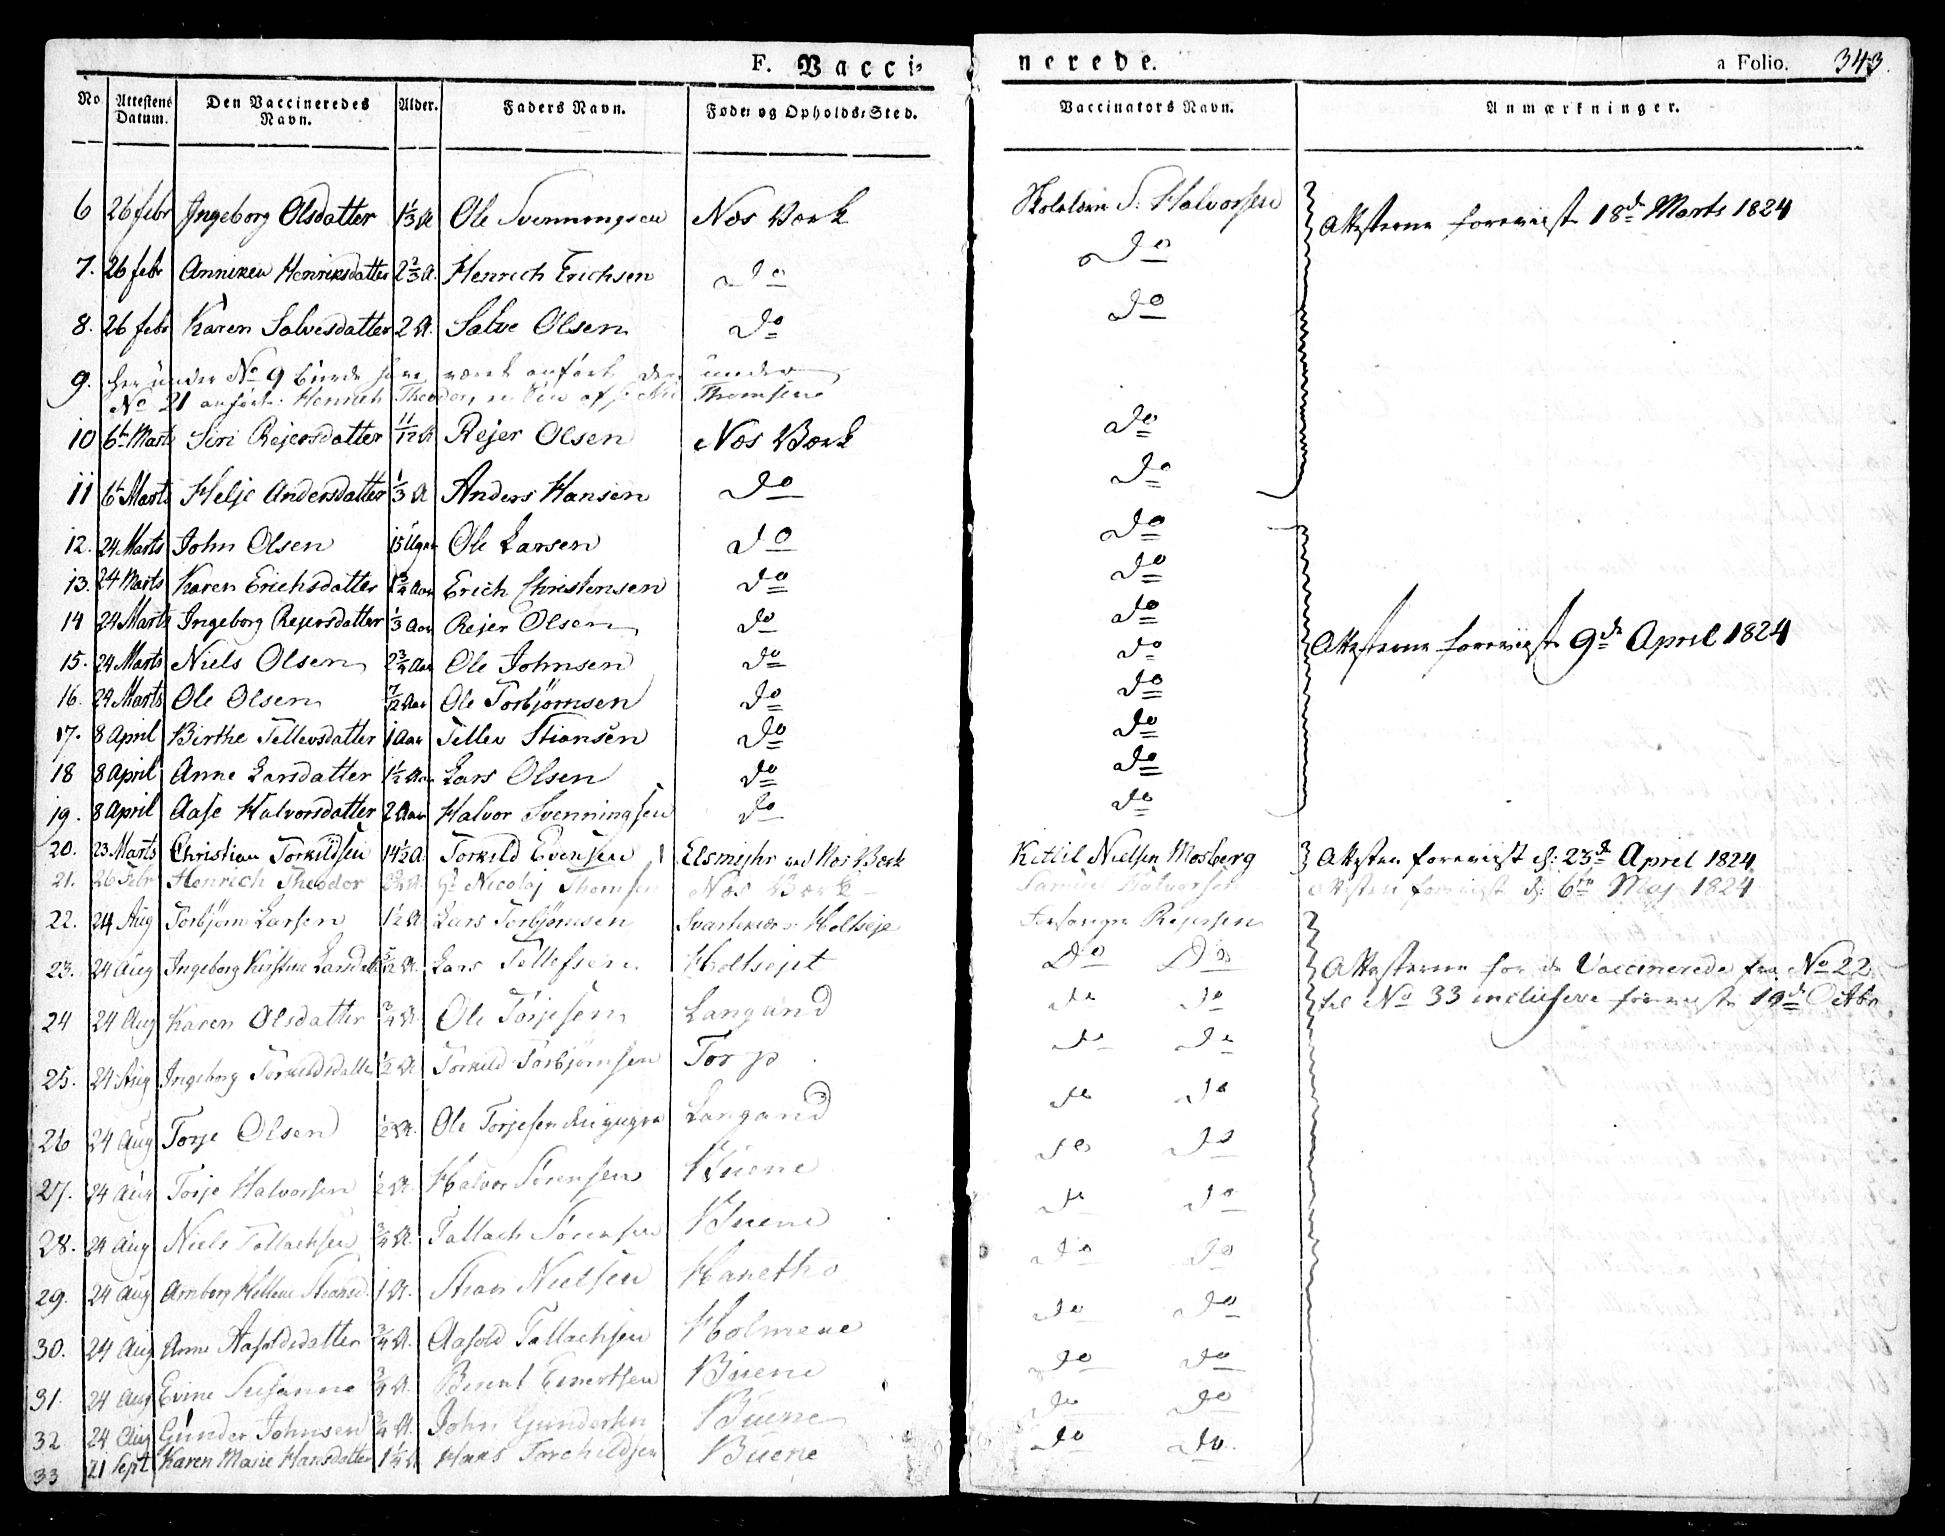 F. Vacci-
nerede.
a Folio. 343.
No Attestens Datum. Den Vaccineredes Navn. Alder. Faders Navn. Føde- og Opholds-Sted. Vaccinators Navn. Anmærkninger.
6 26 febr Ingeborg Olsdatter 1⅓ A Ole Svenningsen Næs Værk S. Halvorsen Attesterne foreviist 18de Marts 1824
7. 26 febr Anniken Henriksdatter 2⅔ A. Henrich Erichsen do do
8. 26 febr Karen Salvesdatter 2 A. Salve Olsen do do
9. Her under No 9 burde have været anført den under
No 21 anførte Henrich Theodor, en Søn af Thomsen
10 6te Marts Siri Rejersdatter 11/12 A Rejer Olsen Næs Værk do
11 6te Marts Helje Andersdatter ⅓ A Anders Hansen do do
12. 24 Marts John Olsen 15 Uger Ole Larsen do do
13. 24 Marts Karen Erichsdatter 1¾ Aar Erich Christensen do do
14 24 Marts Ingeborg Rejersdatter ⅓ Aar Rejer Olsen do do
15. 24 Marts Niels Olsen 2¾ Aar Ole Johnsen do do Attesterne foreviist 9de April 1824
16. 24 Marts Ole Olsen 7/12 Aar Ole Torbjørnsen do do
17. 8 April Birthe Tellevsdatter 1 Aar Tellev Stiansen do do
18 8 April Anne Larsdatter 1½ Aar Lars Olsen do do
19. 8 April Aase Halvorsdatter 2 Aar Halvor Svenningsen do do
20. 23 Marts Christian Torkildsen 14½ A. Torkild Evensen Elsmyhr ved Næs Værk Kittil Nielsen Mosberg Attesten foreviist d: 23de April 1824
21. 26 Febr Henrich Theodor Nicolaj Thomsen Næs Værk Halvorsen Attesten foreviist d: 6te Maj 1824
22. 24 Aug Torbjørn Larsen 1½ A Lars Torbjørnsen Holtseje Rejersen
23. 24 Aug Ingeborg Kirstine Larsdatter 5/12 A. Lars Tellefsen Holtsejet Do Do Attesterne for de Vaccinerede fra No 22
24 24 Aug Karen Olsdatter ¾ A. Ole Torjesen Langand do do til No 33 inclusive foreviist 19de Octbr
25. 24 Aug Ingeborg Torkildsdatter ½ A Torkild Torbjørnsen Torp do do
26 24 Aug Torje Olsen ½ A. Ole Torjesen Langand do do
27. 24 Aug Torje Halvorsen ½ A. Halvor Sørensen Buene do do
28. 24 Aug Niels Tallachsen ¾ A. Tallach Sørensen Buene do do
29. 24 Aug Arnborg Hellene Stiansd. 1 A. Stian Nielsen Hanetho do do
30. 24 Aug Anne Aasoldsdatter ¾ A. Aasold Tallachsen Holmene do do
31. 24 Aug Evine Susanne ¾ A. Berent Evertsen Buene do do
32 24 Aug Gunder Johnsen ¾ A. John Gundersen Buene do do
33 21 Sept Karen Marie Hansdatter Hans Torchildsen Buene do do.